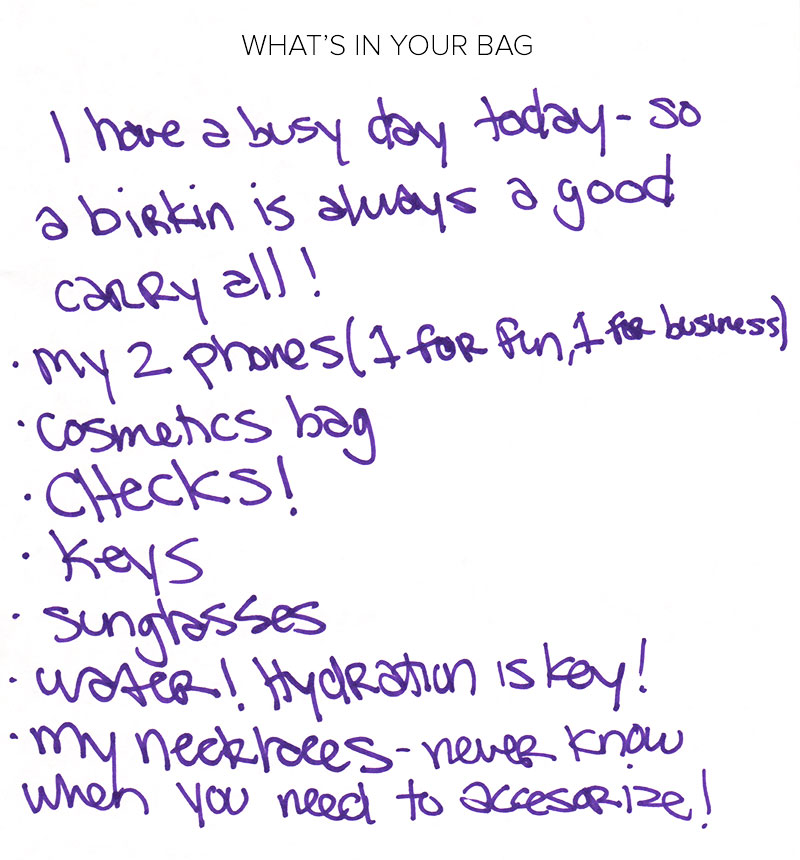 WHAT'S IN YOUR BAG
I have a busy day today - so
a birkin is always a good
carry all!
· my 2 phones (1 for fun, 1 for business)
· cosmetics bag
· CHecks!
· keys
· sunglasses
· water! Hydration is key!
· my necklaces - never know
when you need to accesorize!